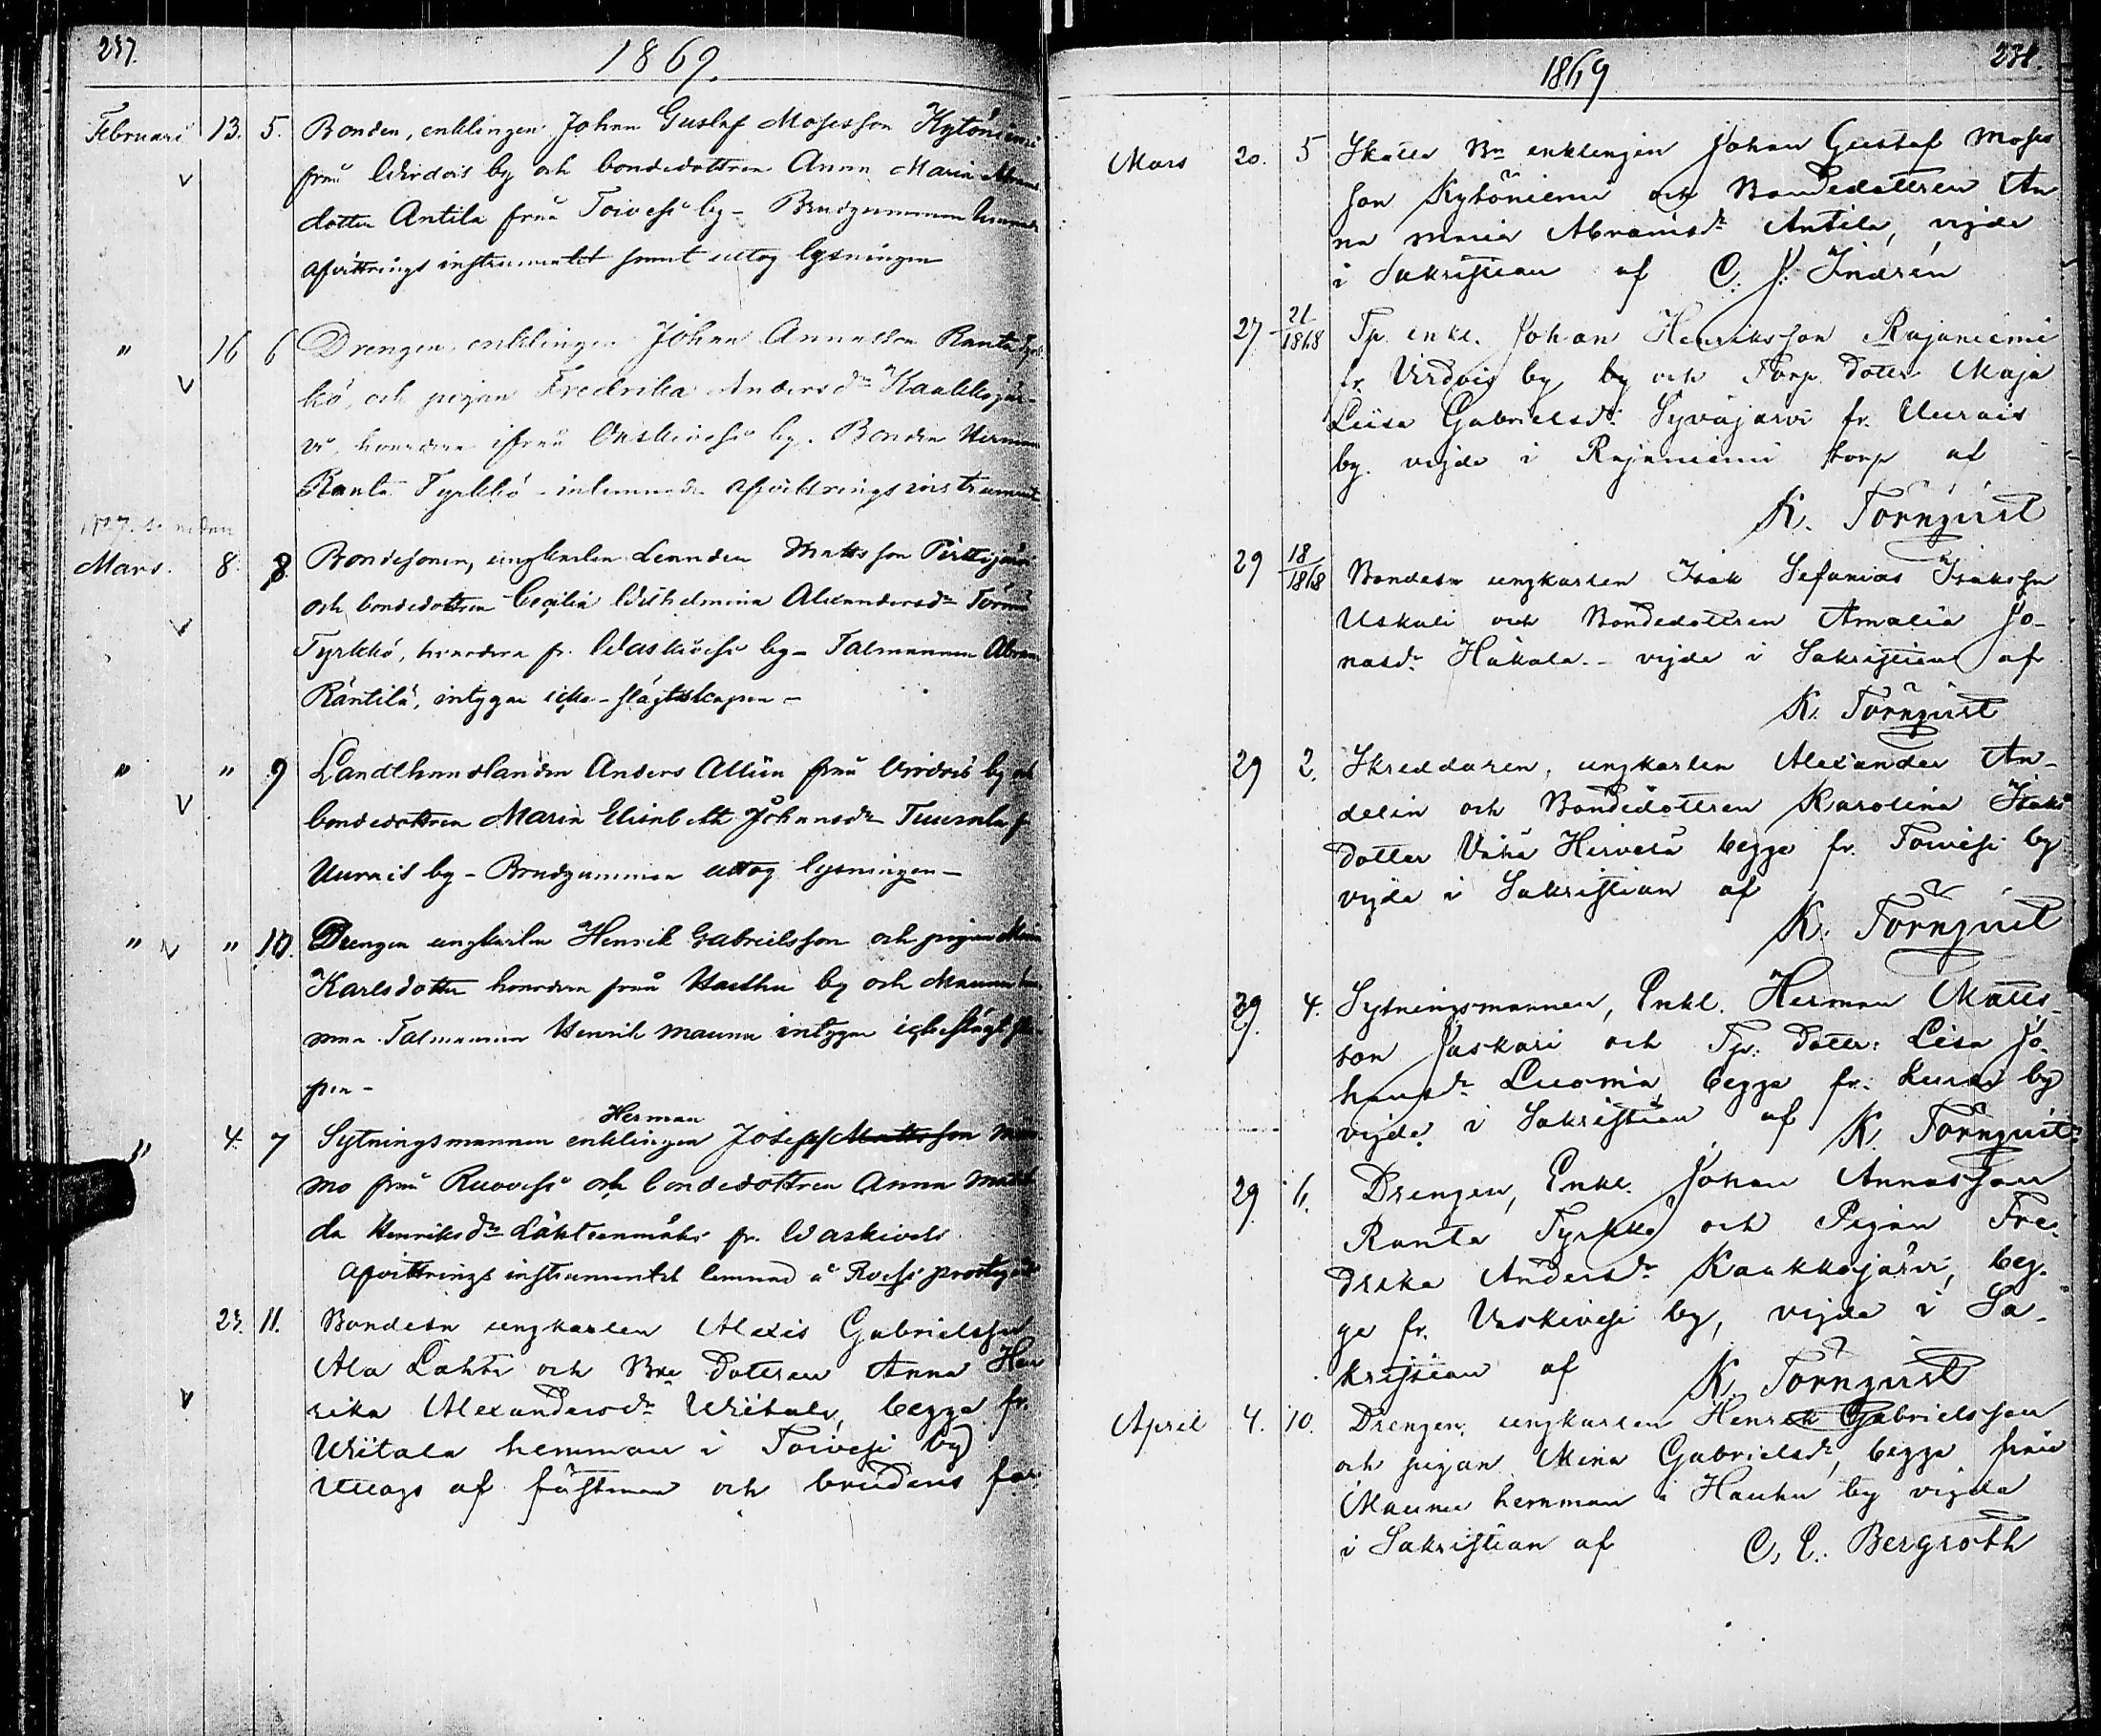 237.
1869.
Februari 13. 5. Bonden, enklingen Johan Gustaf Mosesson Kytöniemi
från Wirdois by och bondedottren Anna Maria
dotter Antila från Toivesi by - Brudgummen
afvittrings instrumentet samt uttog lysningen
" 16 6 Drengen, enklingen Johan Annasson Ranta Tyrk
kö, och pigan Fredrika Andersdr Kaakkojär-
vi, hvardera ifrån Vaskivesi by. Bonden Herman
Ranta Tyrkkö inlemnade afvittringsinstrument
Mars. 8. 8. Bondesonen, ungkarlen Leander Mattsson Pirttijärvi
och bondedottren Cecilia Wilhelmina Alexandersdr
Tyrkkö, hvardera fr. Waskivesi by - Talmannen Abram
Räntilä, intygar icke-slägtskapen -
" " 9 Landthandlanden Anders Allén från Virdois by och
bondedottren Maria Elisabeth Johansdr Tuurala fr
Uurais by - Brudgummen uttog lysningen -
" " 10. Drengen ungkarlen Henrik Gabrielsson och pigan Mina
Karlsdotter hvardera från Hauhu by och Maunu hem
man. Talmannen Henrik Maunu intygar icke slägtska
pen -
Herman
" 4. 7 Sytningsmannen enklingen Josef Mattsson
mo från Ruovesi och bondedottren Anna Matil
da Henriksdr Lähteenmäki fr. Waskivesi
Afvittrings instrumentet lemnad i Rovesi prestgård
23. 11. Bondesn ungkarlen Alexis Gabrielsson
Ala Lahti och Bde Dottren Anna Hen
rika Alexandersdr Wiitala, begge fr.
Wiitala hemman i Toivesi by
Uttags af fästman och brudens far
1869
238.
Mars 20. 5 Skatte Bn enklingen Johan Gustaf Moses
son Kytöniemi och Bondedottren An
na Maria Abramsdr Antila, vigde
i Sakristian af C. J. Indrén
27 21/1868 Tp. enkl. Johan Henriksson Rajaniemi
fr. Virdois by by och Torp. dotter Maja
Liisa Gabrielsdr Syväjärvi fr. Uurais
by. vigde i Rajaniemi torp af
K. Törnqvist
29 18/1868 Bondesn ungkarlen Isak Sefanias Isaksson
Uskali och Bondedottren Amalia Jo-
nasdr Häkala - vigde i Sakristian af
K. Törnqvist
29 2. Skreddaren, ungkarlen Alexander An-
delin och Bondedottren Karolina Isaks
dotter Vähä Hirvelä begge fr. Toivesi by
vigde i Sakristian af
K. Törnqvist
29. 4. Sytningsmannen, Enkl. Herman Matts-
son Jaskari och Tp. Dottr. Lisa Jo
hansdr Luoma begge fr. Kurki by
vigde i Sakristian af K. Törnqvist
29. 6. Drengen, Enkl. Johan Annasson
Ranta Tyrkkö och Pigan Fre-
drika Andersdr Kaakkojärvi, beg-
ge fr. Vaskivesi by, vigde i Sa-
kristian af K. Törnqvist
April 4. 10. Drengen, ungkarlen Henrik Gabrielsson
och pigan Mina Gabrielsdr, begge från
Maunu hemman i Hauhu by vigde
i Sakristian af C. E. Bergroth